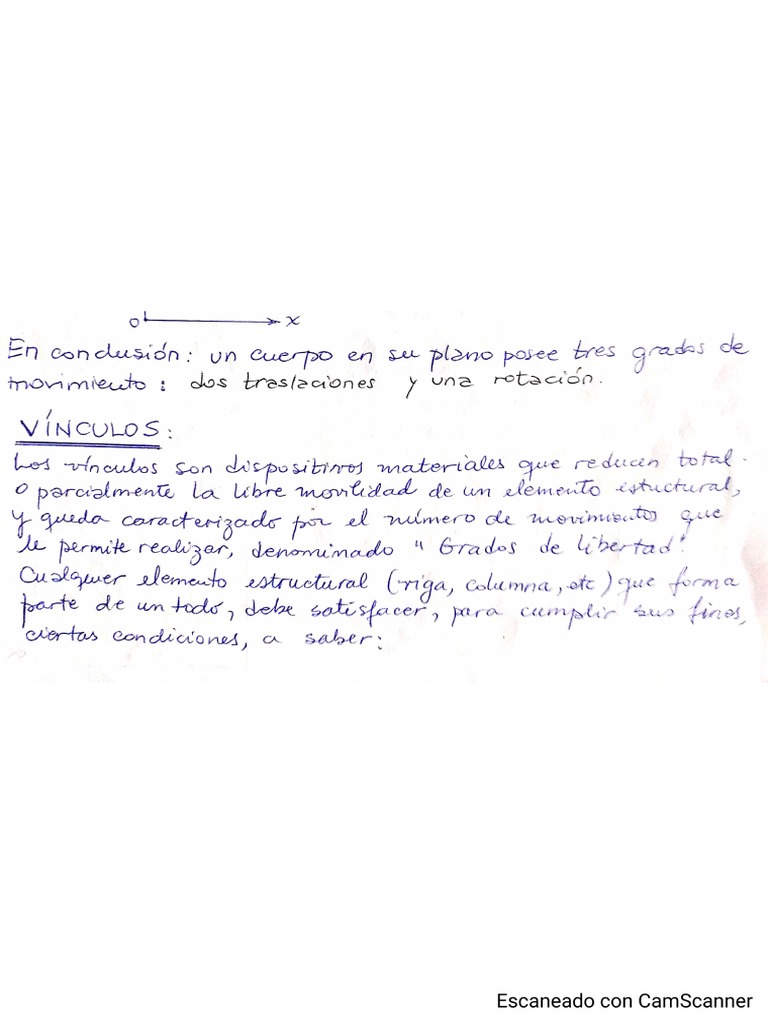 0 x
En conclusión: un cuerpo en su plano posee tres grados de
movimiento: dos traslaciones y una rotación.
VÍNCULOS:
Los vínculos son dispositivos materiales que reducen total
o parcialmente la libre movilidad de un elemento estuctural,
y queda caracterizado por el número de movimientos que
le permite realizar, denominado "Grados de libertad".
Cualquier elemento estructural (viga, columna, etc) que forma
parte de un todo, debe satisfacer, para cumplir sus fines,
ciertas condiciones, a saber:
Escaneado con CamScanner